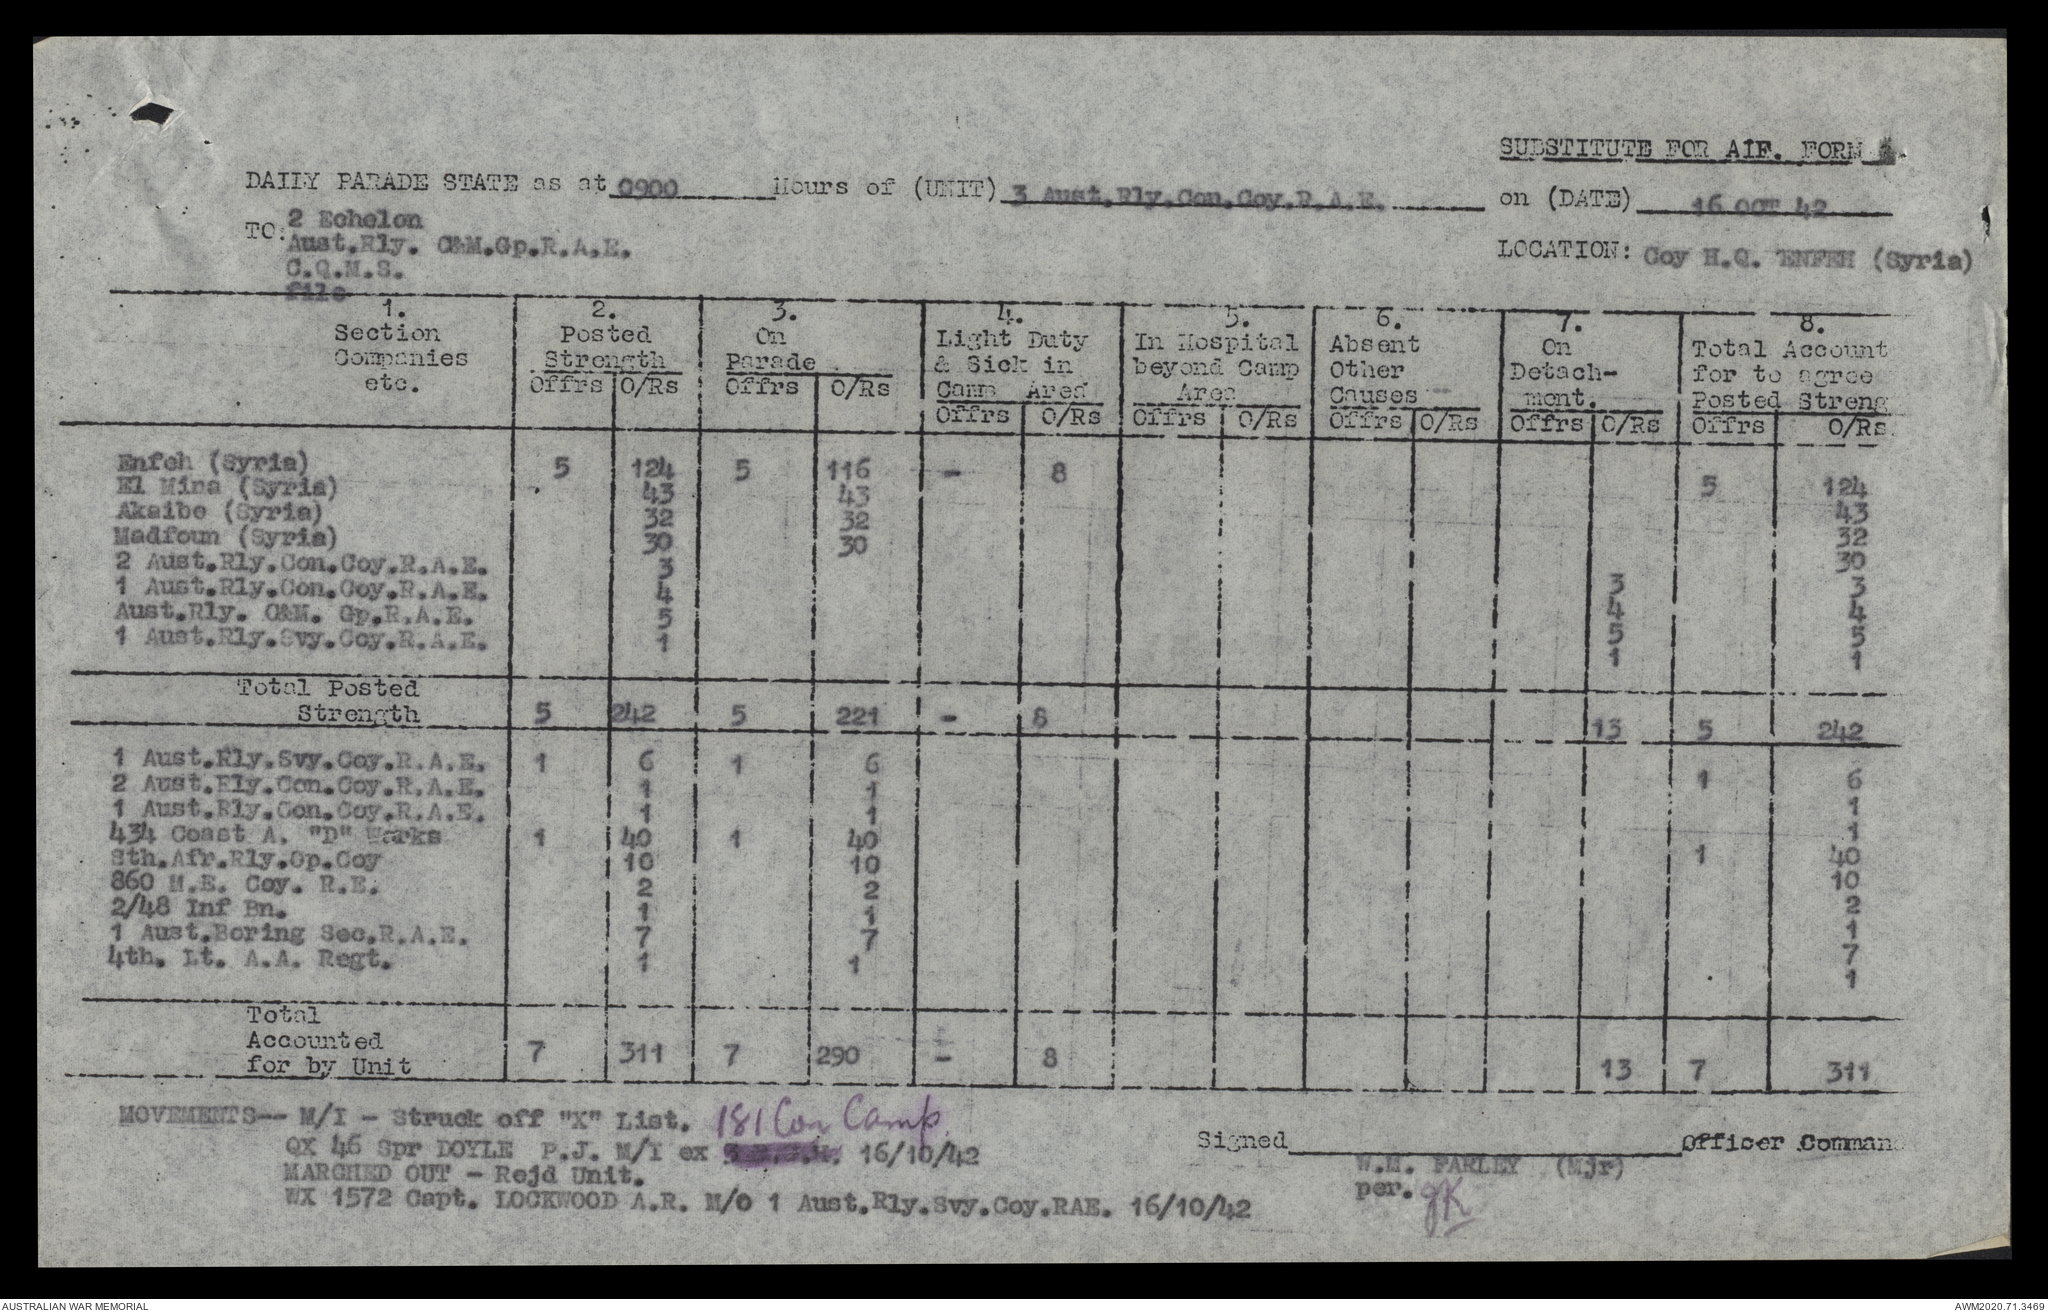 SUBSTITUTE FOR AIF. FORM
DAILY PARADE STATE as at 0900 Hours of (UNIT) 3 Aust.Rly.Con.Coy.R.A.E. on (DATE) 16 OCT 42
TO: 2 Echelon
Aust.Rly. C&M.Gp.R.A.E.
C.Q.M.S.
file
LOCATION: Coy H.Q. ENFEH (Syria)
1. 2. 3. 4. 5. 6. 7. 8.
Section Companies etc. Posted Strength On Parade Light Duty & Sick in Camp Area In Hospital beyond Camp Area Absent Other Causes On Detach-ment. Total Account for to agree Posted Streng
Offrs O/Rs Offrs O/Rs Offrs O/Rs Offrs O/Rs Offrs O/Rs Offrs O/Rs Offrs O/Rs
Enfeh (Syria) 5 124 5 116 - 8 5 124
El Mina (Syria) 43 43 43
Akaibe (Syria) 32 32 32
Madfoun (Syria) 30 30 30
2 Aust.Rly.Con.Coy.R.A.E. 3 3 3
1 Aust.Rly.Con.Coy.R.A.E. 4 4 4
Aust.Rly. C&M. Gp.R.A.E. 5 5 5
1 Aust.Rly.Svy.Coy.R.A.E. 1 1 1
Total Posted
Strength 5 242 5 221 - 8 13 5 242
1 Aust.Rly.Svy.Coy.R.A.E. 1 6 1 6 1 6
2 Aust.Rly.Con.Coy.R.A.E. 1 1 1
1 Aust.Rly.Con.Coy.R.A.E. 1 1 1
434 Coast A. "D" Works 1 40 1 40 1 40
Sth.Afr.Rly.Op.Coy 10 10 10
860 M.E. Coy. R.E. 2 2 2
2/48 Inf Bn. 1 1 1
1 Aust.Boring Sec.R.A.E. 7 7 7
4th. Lt. A.A. Regt. 1 1 1
Total
Accounted
for by Unit 7 311 7 290 - 8 13 7 311
MOVEMENTS-- M/I - Struck off "X" List. 181 Con Camp
QX 46 Spr DOYLE P.J. M/I ex 16/10/42
MARCHED OUT - Rejd Unit.
WX 1572 Capt. LOCKWOOD A.R. M/O 1 Aust.Rly.Svy.Coy.RAE. 16/10/42
Signed Officer Comman
W.M. FARLEY (Mjr)
per. JK
AUSTRALIAN WAR MEMORIAL
AWM2020.71.3469